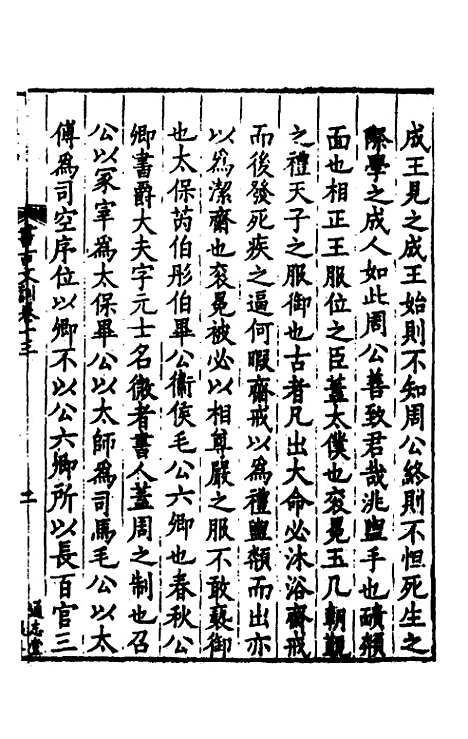 成王見之成王始則不知周公終則不怛死生之
際學之成人如此周公善致君哉洮盥手也頮頮
面也相正王服位之臣蓋太僕也袞冕玉几朝覲
之禮天子之服御也古者凡出大命必沐浴齋戒
而後發死疾之逼何暇齋戒以為禮盥頮而出亦
以為潔齋也袞冕被必以相尊嚴之服不敢䙝御
也太保芮伯彤伯畢公衞侯毛公六卿也春秋公
卿書爵大夫字元士名微者書人蓋周之制也召
公以冢宰為太保畢公以太師為司馬毛公以太
傅為司空序位以卿不以公六卿所以長百官三
書古文訓卷十三
二
通志堂